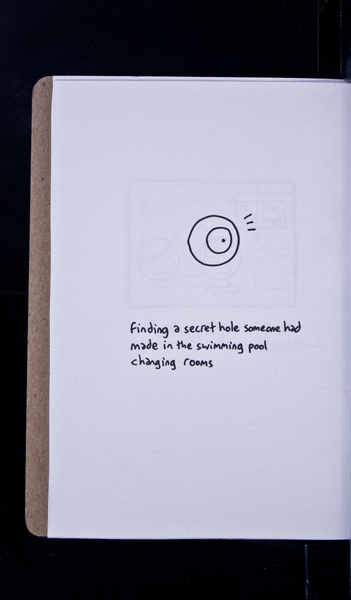 finding a secret hole someone had
made in the swimming pool
changing rooms